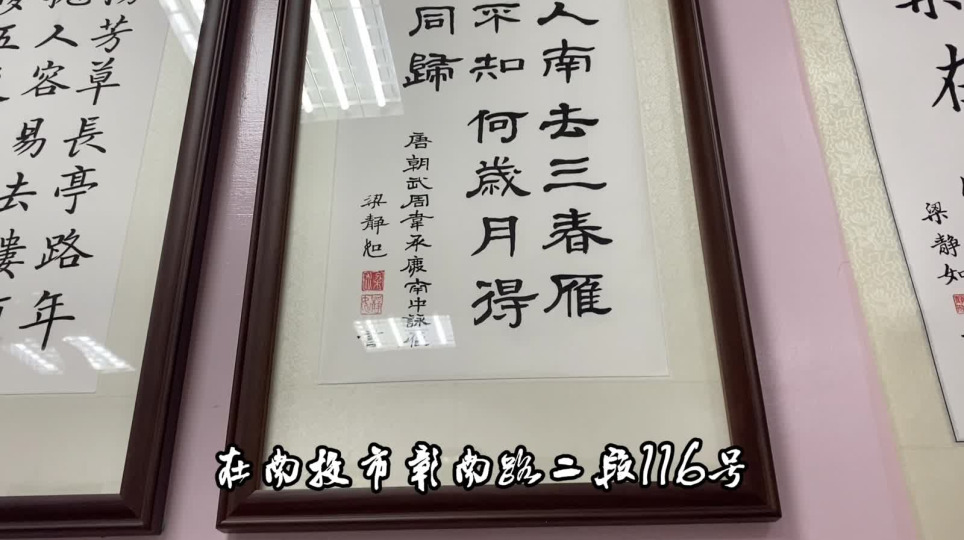 梁靜如
人南去三春雁
不知何歲月得
同歸
唐朝武周韋承慶南中詠雁
梁靜如
芳草長亭路年
人容易去
在南投市彰南路二段116号